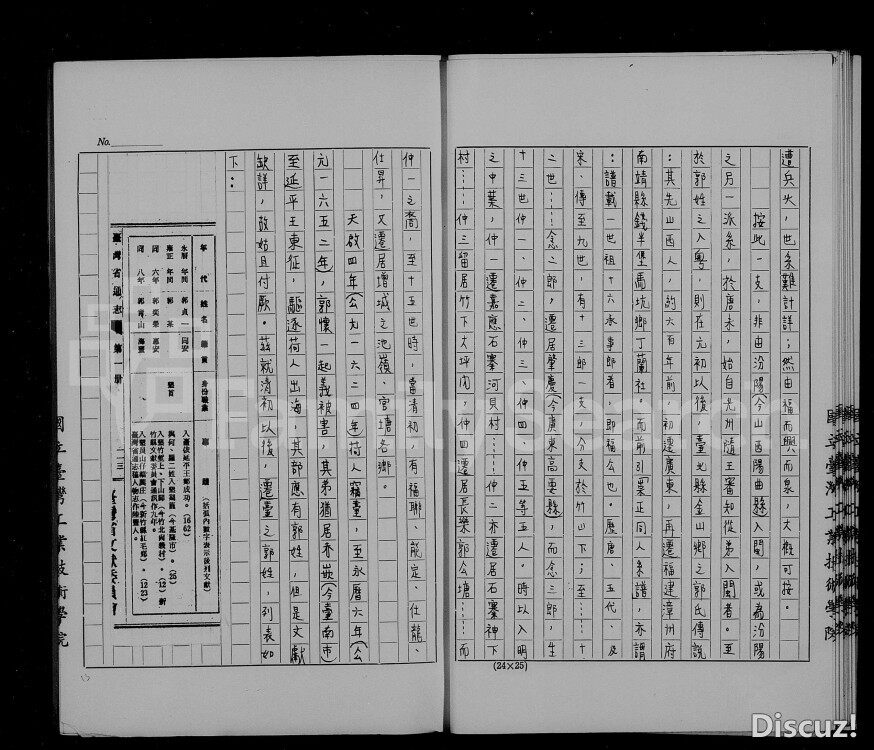 遭兵火,也系難計詳;然由福而興而泉,大概可按。
按此一支,非由汾陽(今山西陽曲縣)入閩,或為汾陽
之另一派系,於唐末,始自光州隨王審知從弟入閩者。至
於郭姓之入粵,則在元初以後,臺北縣金山鄉之郭氏傳說
:其先山西人,約六百年前,初遷廣東,再遷福建漳州府
南靖縣錢半堡馬坑鄉丁蘭社。而前引(栗正同人系譜,亦謂
:譜載一世祖十六承事郎者,即福公也。歷唐、五代、及
宋、傳至九世,有十三郎一支,分支於竹山下;至……十
二世……念之郎,遷居肇慶(今廣東高要縣),而念三郎,生
十三世仲一、仲二、仲三、仲四、仲五等五人。時以入明
之中葉,仲一遷嘉應石寨河貝村……仲二亦遷居石寨神下
村……仲三留居竹下大坪肉,仲四遷居長樂郭公塘……而
(24×25)
No.
仲一之裔,至十五世時,當清初,有福聯、能定、仕龍、
仕昇,又遷居增城之池嶺、官塘各鄉。
天啟四年(公元一六二四年)荷人竊臺,至永曆六年(公
元一六五二年),郭懷一起義被害,其弟猶居赤崁(今臺南市)
至延平王東征,驅逐荷人出海,其部應有郭姓,但是文獻
缺詳,故姑且付厥。茲就清初以後,遷臺之郭姓,列表如
下:
臺灣省通志 第一冊
年代 姓名 籍貫 身份職業 事蹟(括弧內數字表示後列文獻)
永曆年間 郭貞一 同安 入臺依延平王鄭成功。(1662)
雍正年間 郭某 墾首 與何、羅二姓入墾
同六年 郭奕榮 惠安
同八年 郭青山 海豐
國立臺灣工業技術學院
Discuz!